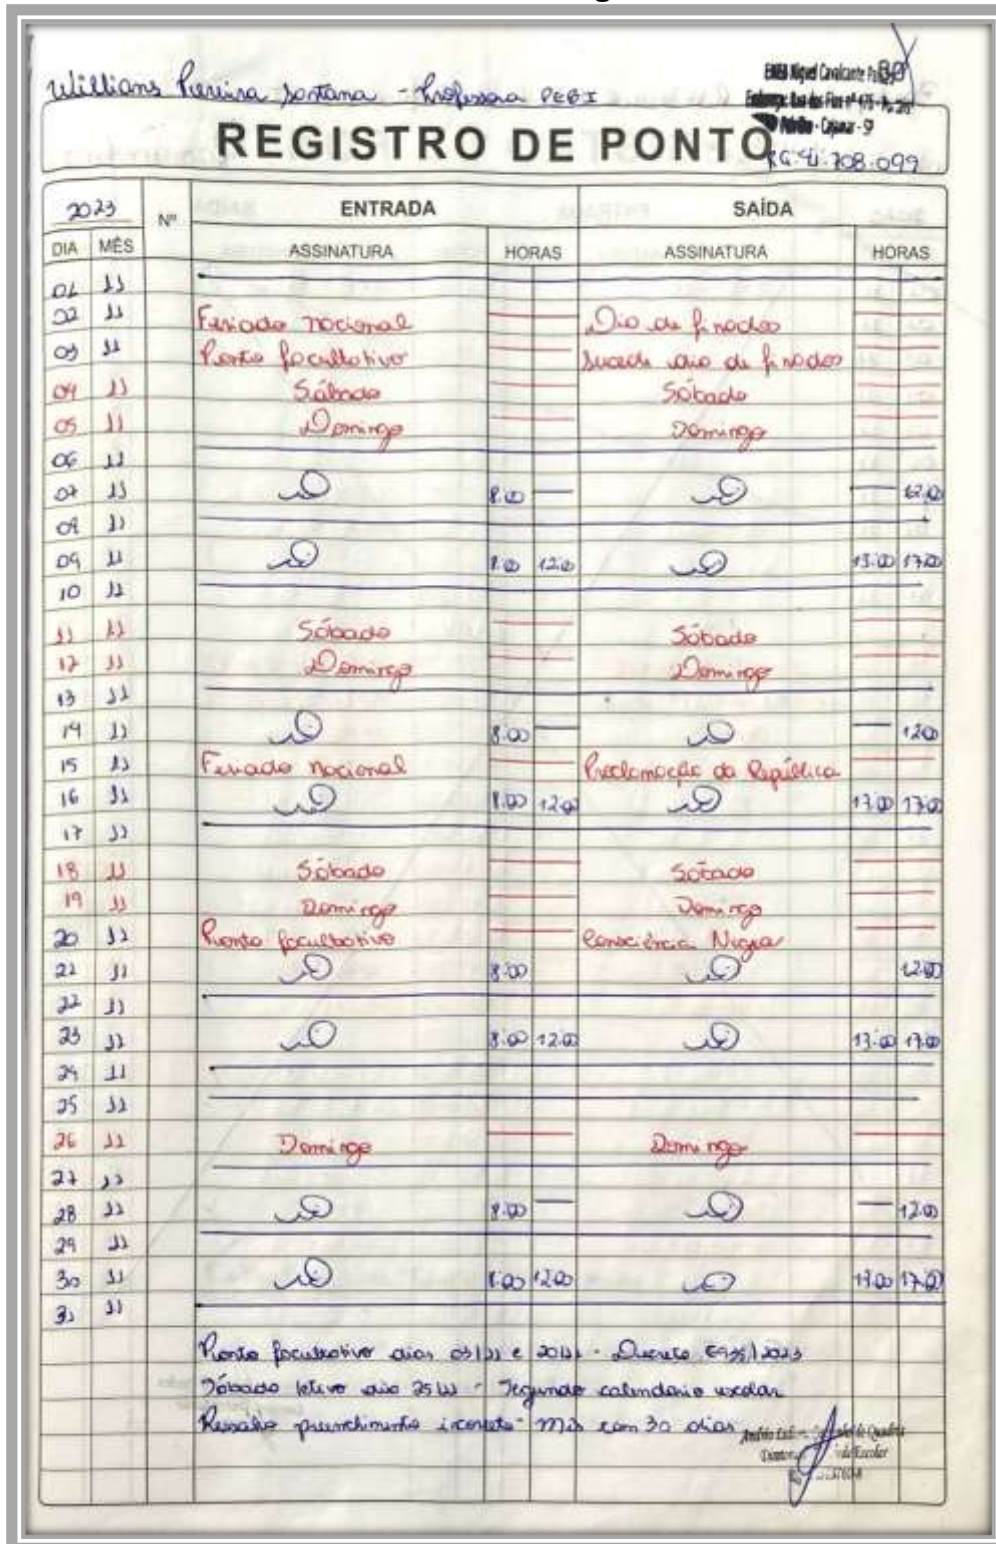 Willians Pereira Santana - Professora PEBI
EMEB Miguel Cavalcante
Cajamar - SP
REGISTRO DE PONTO
RG: 41.708.099
2023 Nº ENTRADA SAÍDA
DIA MÊS ASSINATURA HORAS ASSINATURA HORAS
01 11
02 11 Feriado nacional Dia de finados
03 11 Ponto facultativo Sucede dia de finados
04 11 Sábado Sábado
05 11 Domingo Domingo
06 11
07 11 8:00 12:00
08 11
09 11 8:00 12:00 13:00 17:00
10 11
11 11 Sábado Sábado
12 11 Domingo Domingo
13 11
14 11 8:00 12:00
15 11 Feriado nacional Proclamação da República
16 11 8:00 12:00 13:00 17:00
17 11
18 11 Sábado Sábado
19 11 Domingo Domingo
20 11 Ponto facultativo Consciência Negra
21 11 8:00 12:00
22 11
23 11 8:00 12:00 13:00 17:00
24 11
25 11
26 11 Domingo Domingo
27 11
28 11 8:00 12:00
29 11
30 11 8:00 12:00 13:00 17:00
31 11
Ponto facultativo dias 03/11 e 20/11 - Decreto /2023
Sábado letivo dia 25/11 - Segundo calendário escolar
Ressalva preenchimento incorreto - Mês com 30 dias